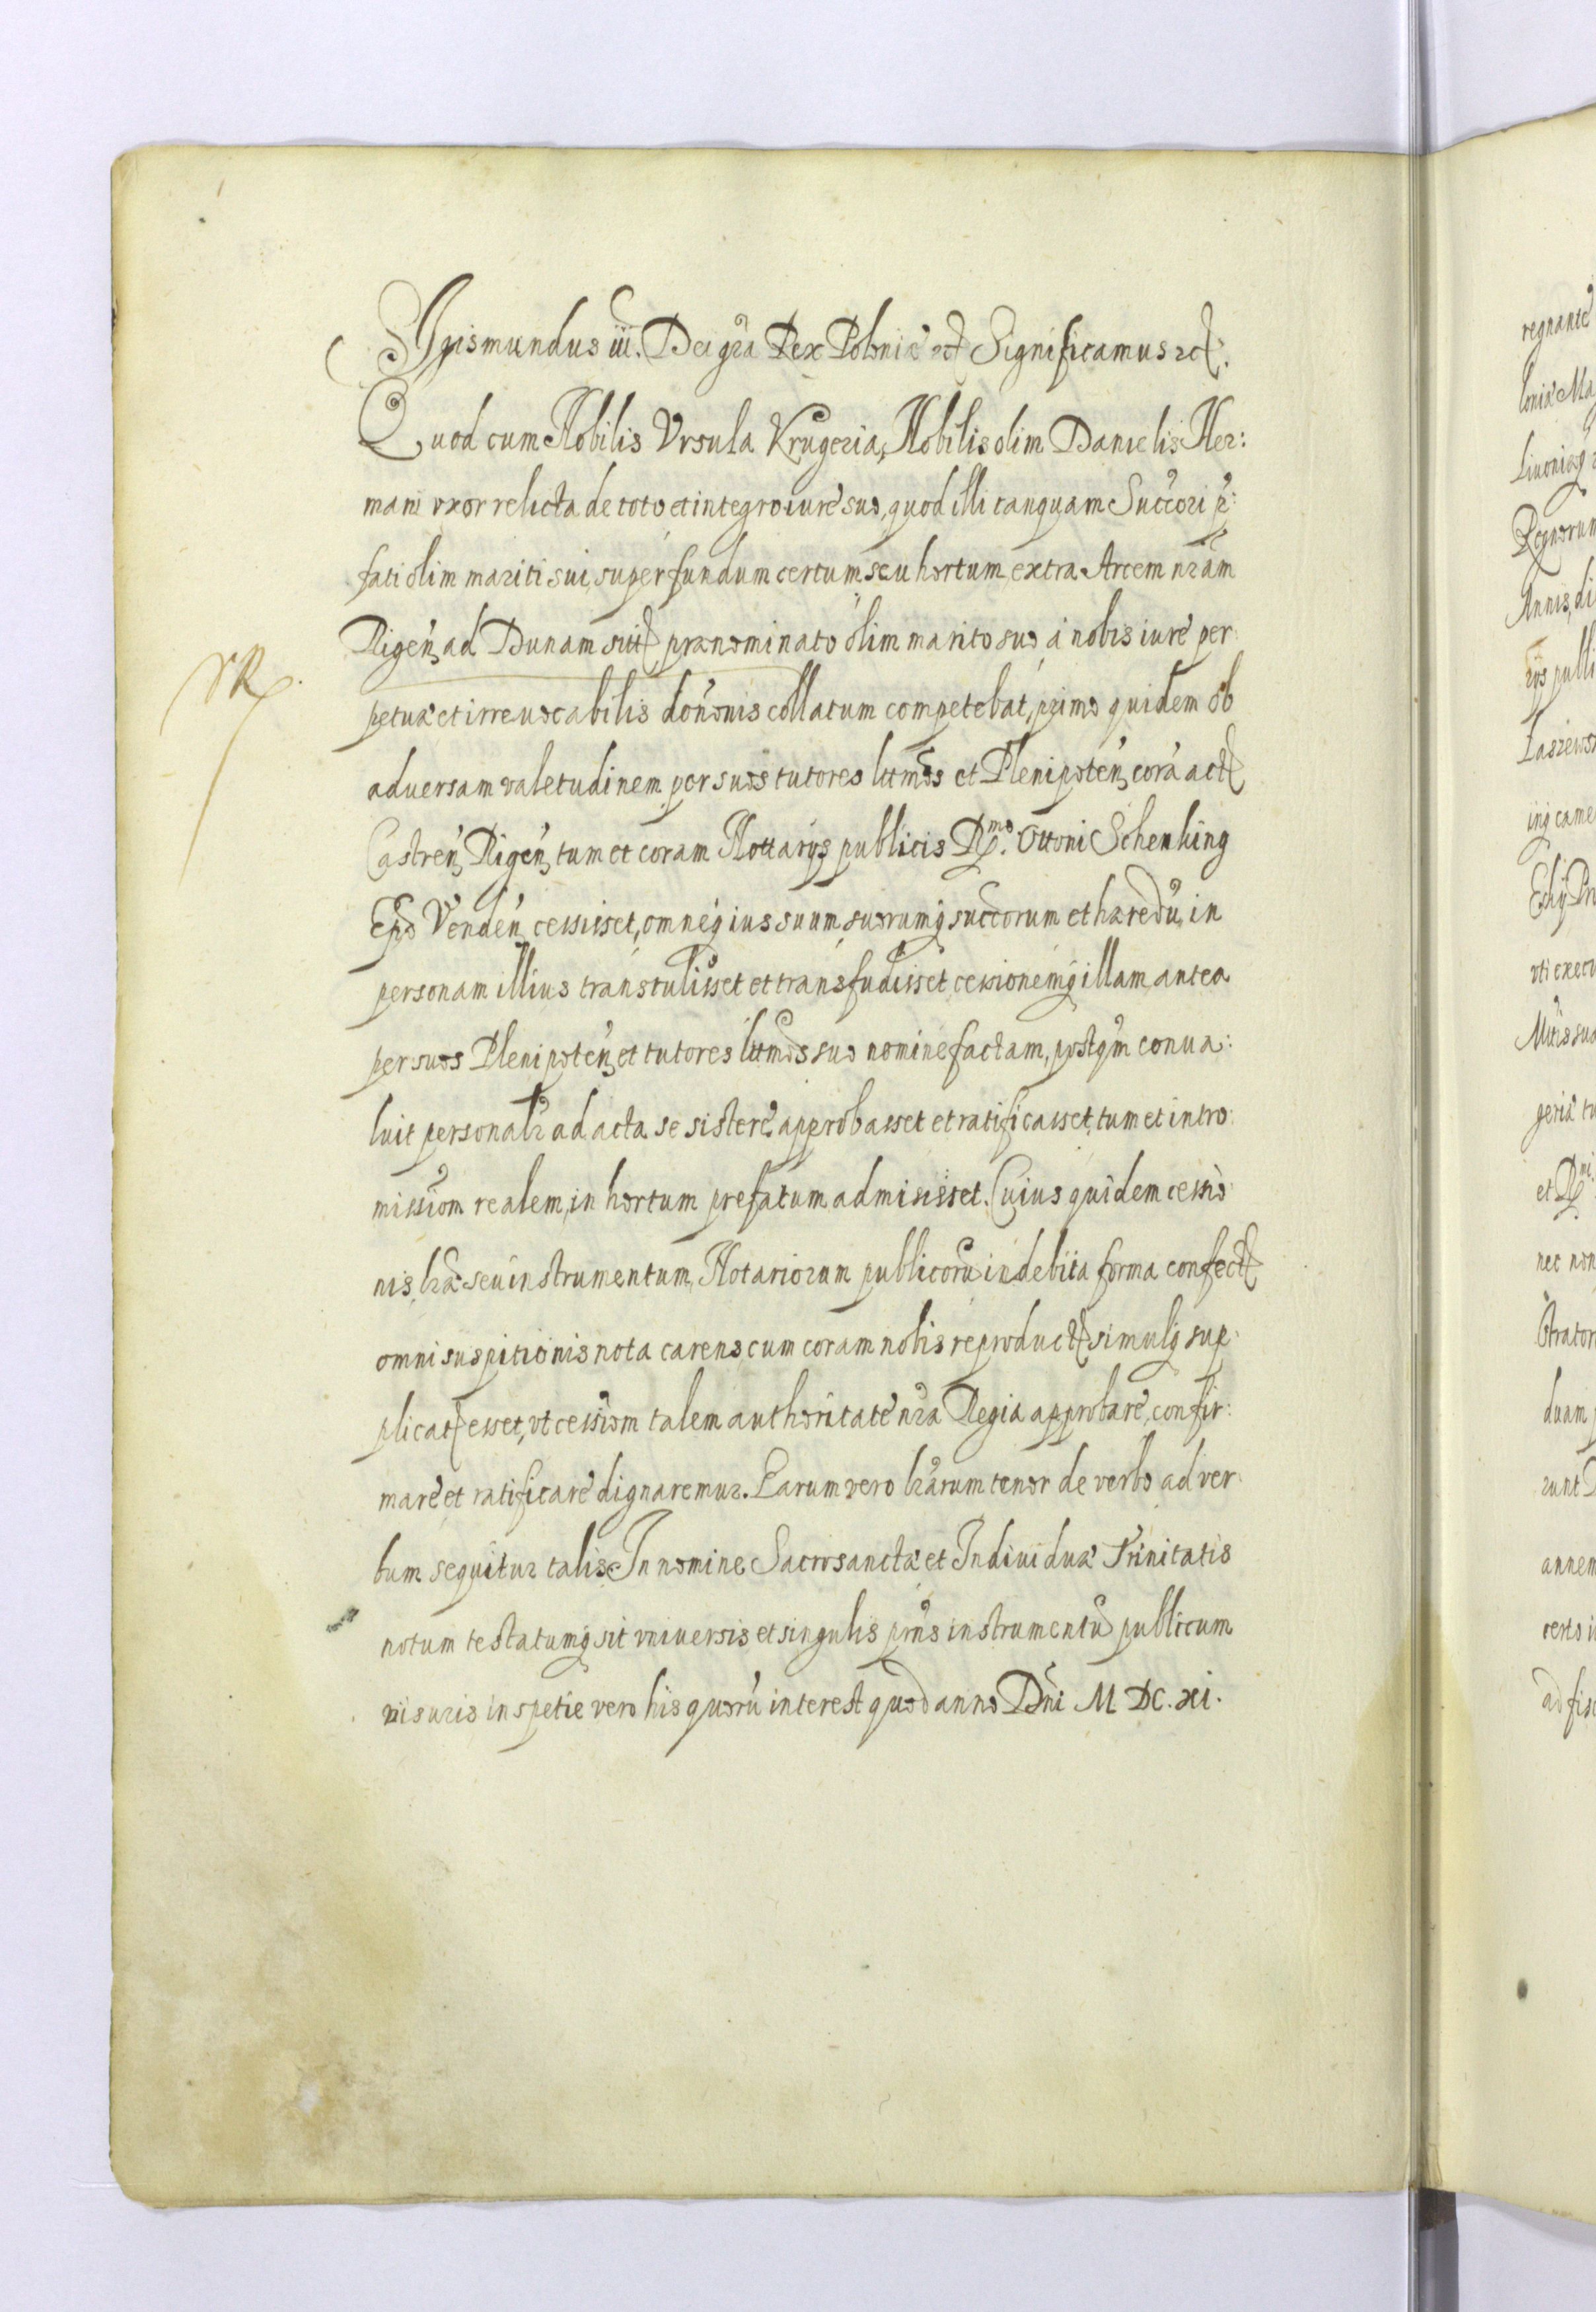 Sigismundus iii. Dei gra Rex Poloniæ etc Significamus etc.
Quod cum Nobilis Vrsula Krugeria, Nobilis olim Danielis Her:
mani vxor relicta de toto et integro iure suo, quod illi tanquam Succori p:
fati olim mariti sui, super fundum certum seu hortum extra Arcem nram
Rigen, ad Dunam sitt, prænominato olim marito suo à nobis iure per
petuæ et irreuocabilis dononis collatum competebat, primo quidem ob
aduersam valetudinem per suos tutores lttmos et Plenipoten, corã act
Castren, Rigen, tum et coram Nottarijs publicis R.mo Ottoni Schenking
Epo Venden, cessisset, omneq ius suum, suorumq succorum et hæredũ, in
personam illius transtulisset et transfudisset cessionemq illam antea
per suos Plenipoten, et tutores lttmos suo nomine factam, postqm conua:
luit personalr ad acta se sistere, approbasset et ratificasset, tum et intro:
missiom realem, in hortum prefatum admisisset. Cuius quidem cessio
nis, lræ seu instrumentum, Notariorum publicorũ in debita forma confect
omni suspitionis nota carens, cum coram nobis reproduct simulq sup:
plicat esset, vt cessiom talem authoritate nra Regia approbare, confir:
mare et ratificare dignaremur. Earum vero lrarum tenor de verbo ad ver
bum sequitur talis. In nomine Sacrosanctæ et Indiuiduæ Trinitatis
notum testatumq sit vniuersis et singulis prns instrumentũ publicum
visuris in spetie vero his quorũ interest quod anno Dni M DC. xi.
regnante
loniæ Ma
Liuoniæq
Regnorum
Annis, di
rijs publi
uti execu
geriæ tu
nec non
duam
annem
certo i